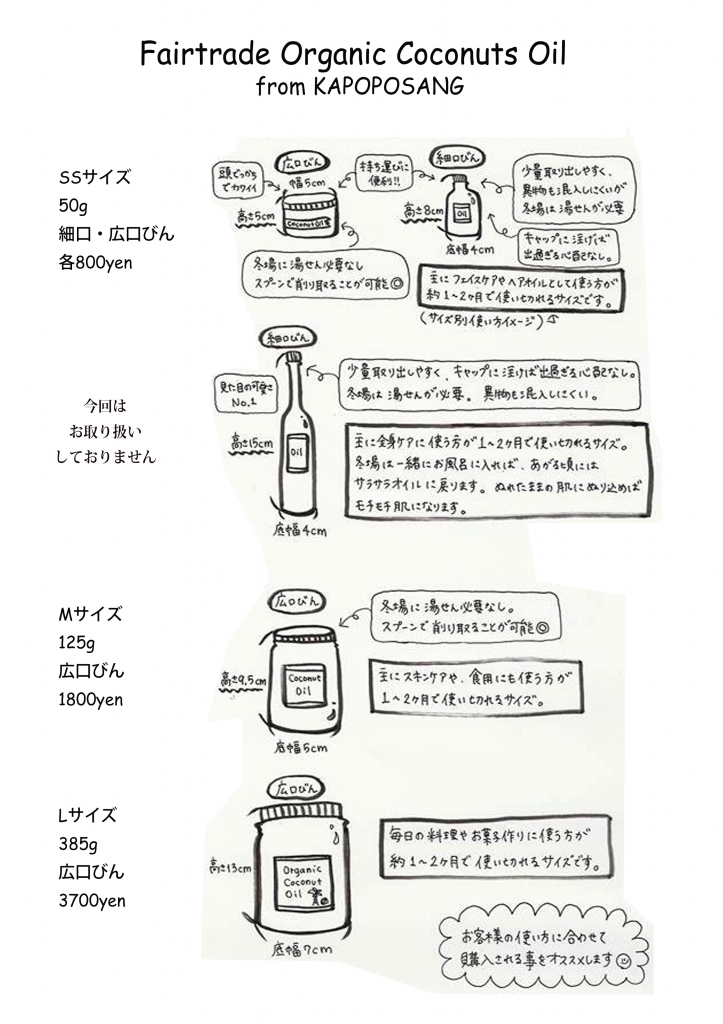 Fairtrade Organic Coconuts Oil
from KAPOPOSANG
SSサイズ
50g
細口・広口びん
各800yen
広口びん
頭でっかち
でカワイイ
幅5cm
持ち運びに
便利!!
高さ5cm
coconut oil
冬場に湯せん必要なし
スプーンで削り取ることが可能◎
細口びん
高さ8cm
Oil
底幅4cm
少量取り出しやすく、
異物も混入しにくいが
冬場は湯せんが必要
キャップに注げば
出過ぎる心配なし。
主にフェイスケアやヘアオイルとして使う方が
約1〜2ヶ月で使い切れるサイズです。
(サイズ別使い方イメージ)
今回は
お取り扱い
しておりません
細口びん
見た目の可愛さ
No.1
高さ15cm
Oil
底幅4cm
少量取り出しやすく、キャップに注げば出過ぎる心配なし。
冬場は湯せんが必要。異物も混入しにくい。
主に全身ケアに使う方が1〜2ヶ月で使い切れるサイズ。
冬場は一緒にお風呂に入れば、あがる頃には
サラサラオイルに戻ります。ぬれたままの肌にぬり込めば
モチモチ肌になります。
Mサイズ
125g
広口びん
1800yen
広口びん
高さ9.5cm
Coconut
Oil
底幅5cm
冬場に湯せん必要なし。
スプーンで削り取ることが可能◎
主にスキンケアや、食用にも使う方が
1〜2ヶ月で使い切れるサイズ。
Lサイズ
385g
広口びん
3700yen
広口びん
高さ13cm
Organic
Coconut
Oil
底幅7cm
毎日の料理やお菓子作りに使う方が
約1〜2ヶ月で使い切れるサイズです。
お客様の使い方に合わせて
購入される事をオススメします